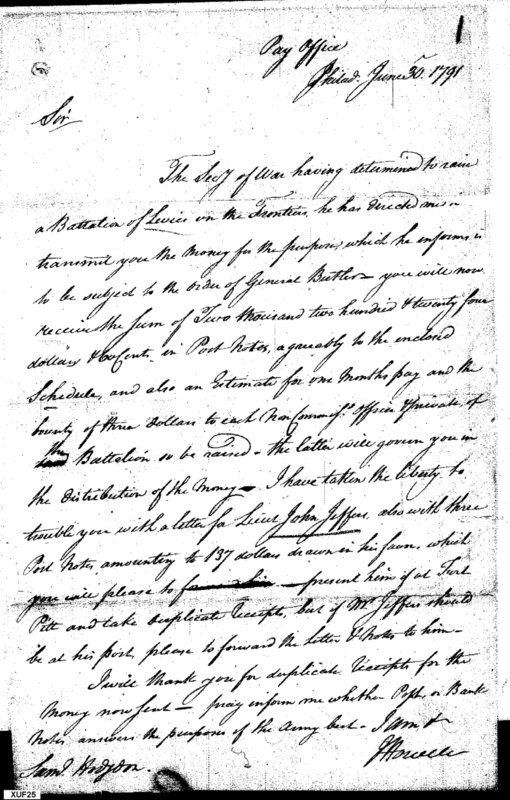 1
Pay Office
Philad. June 30. 1791
Sir
The Secy of War having determined to raise
a Battalion of Levies on the Frontiers, he has directed me to
transmit you the Money for the purpose, which he informs is
to be subject to the order of General Butler — you will now
receive the Sum of Two thousand two hundred & twenty four
dollars & Cents, in Post Notes, agreeably to the enclosed
Schedule, and also an Estimate for one Months pay and the
bounty of three dollars to each Non Commd. officer & private of
the Battalion so be raised — the latter will govern you in
the distribution of the Money — I have taken the liberty to
trouble you with a letter for Lieut John Jeffers, also with three
Post Notes amounting to 137 dollars drawn in his favor, which
you will please to — present him if at Fort
Pitt and take duplicate receipts, but if Mr Jeffers should
be at his post, please to forward the letter & Notes to him —
I will thank you for duplicate receipts for the
Money now sent — pray inform me whether Post, or Bank
Notes, answers the purposes of the Army best — I am &
J Howell
Saml. Hodgdon.
XUF25